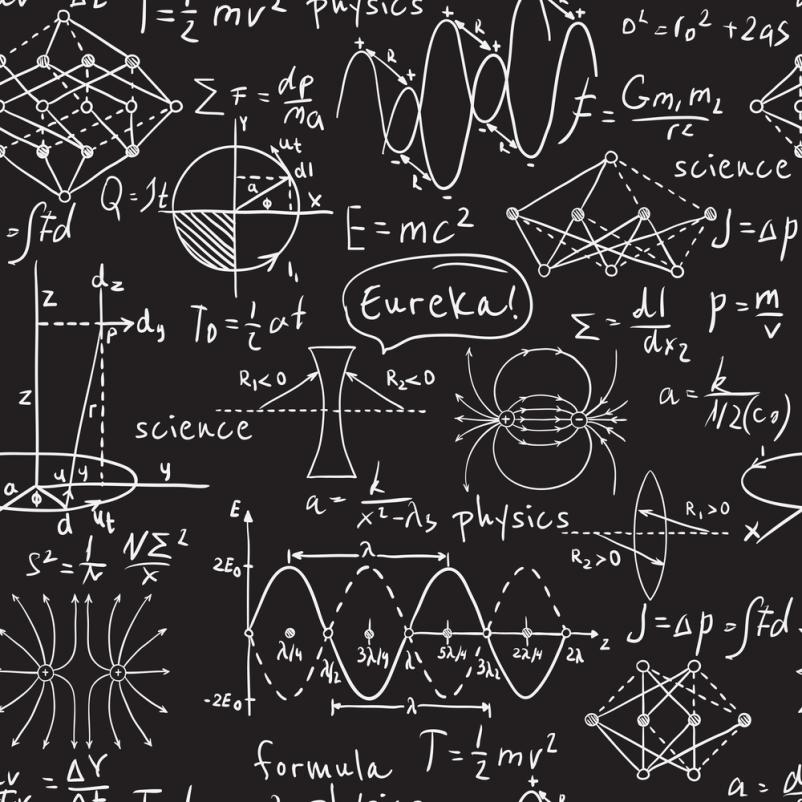 T=½ mv² physics
D²=r₀²+2as
Σ F = dp/ma
F = Gm₁m₂/r²
science
Y
ut
dl
a
φ
x
R
R
R
R
+
+
+
+
-
-
-
-
E=mc²
J=Δp
=∫Fd
z
dz
dy
p
z
r
T₀=½ at
Eureka!
Σ = dl/dx₂
p=m/v
R₁<0
R₂<0
science
+
-
a=
y
a
φ
u
y
d
ut
a= k/x²-λ₃
physics
R₁>0
R₂>0
x
S²=
NΣ²/x
E
λ
2E₀
-2E₀
λ/4
λ/2
3λ/4
λ
5λ/4
3λ₂
2λ/4
2λ
z
λ
J=Δp=∫Fd
+
+
formula
T=½ mv²
= ΔY/Δt
a=